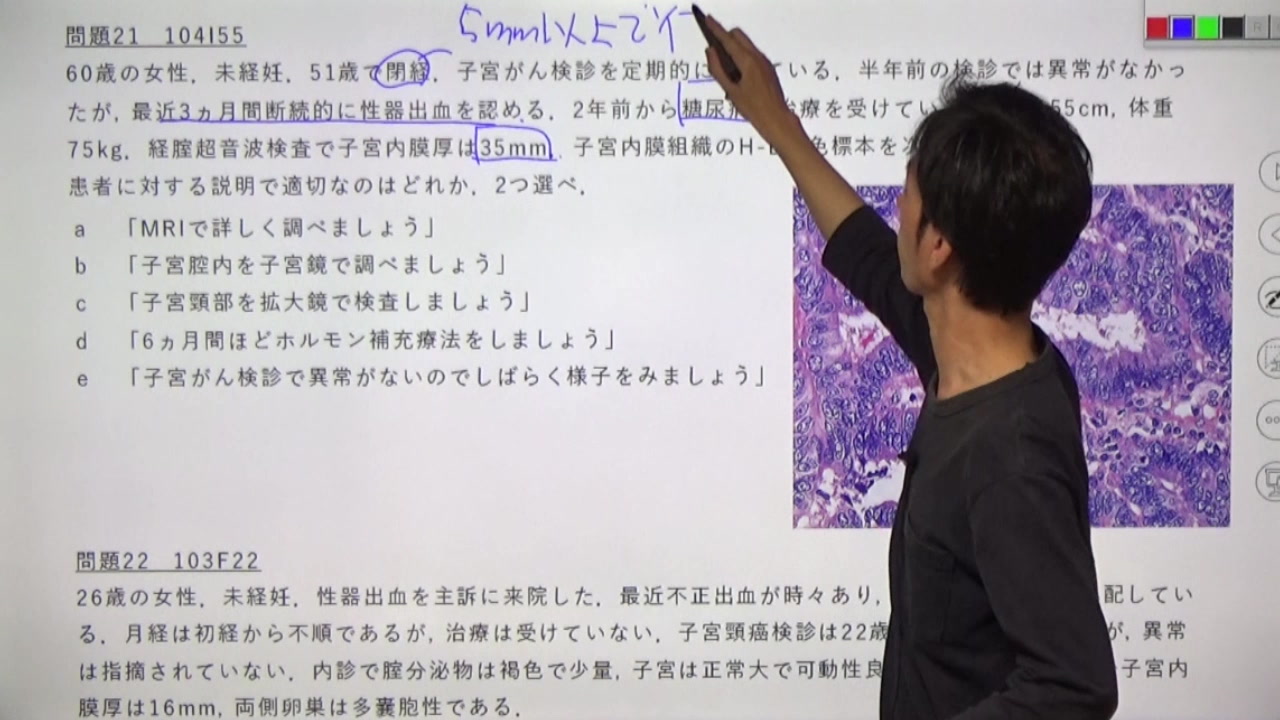 5mm以上で
問題21 104I55
60歳の女性．未経妊．51歳で閉経．子宮がん検診を定期的に ている．半年前の検診では異常がなかっ
たが，最近3ヵ月間断続的に性器出血を認める．2年前から糖尿 治療を受けてい 55cm，体重
75kg．経腟超音波検査で子宮内膜厚は35mm．子宮内膜組織のH-E 色標本を
患者に対する説明で適切なのはどれか．2つ選べ．
a 「MRIで詳しく調べましょう」
b 「子宮腔内を子宮鏡で調べましょう」
c 「子宮頸部を拡大鏡で検査しましょう」
d 「6ヵ月間ほどホルモン補充療法をしましょう」
e 「子宮がん検診で異常がないのでしばらく様子をみましょう」
問題22 103F22
26歳の女性．未経妊．性器出血を主訴に来院した．最近不正出血が時々あり， 配してい
る．月経は初経から不順であるが，治療は受けていない．子宮頸癌検診は22歳 が，異常
は指摘されていない．内診で腟分泌物は褐色で少量，子宮は正常大で可動性良 子宮内
膜厚は16mm，両側卵巣は多嚢胞性である．